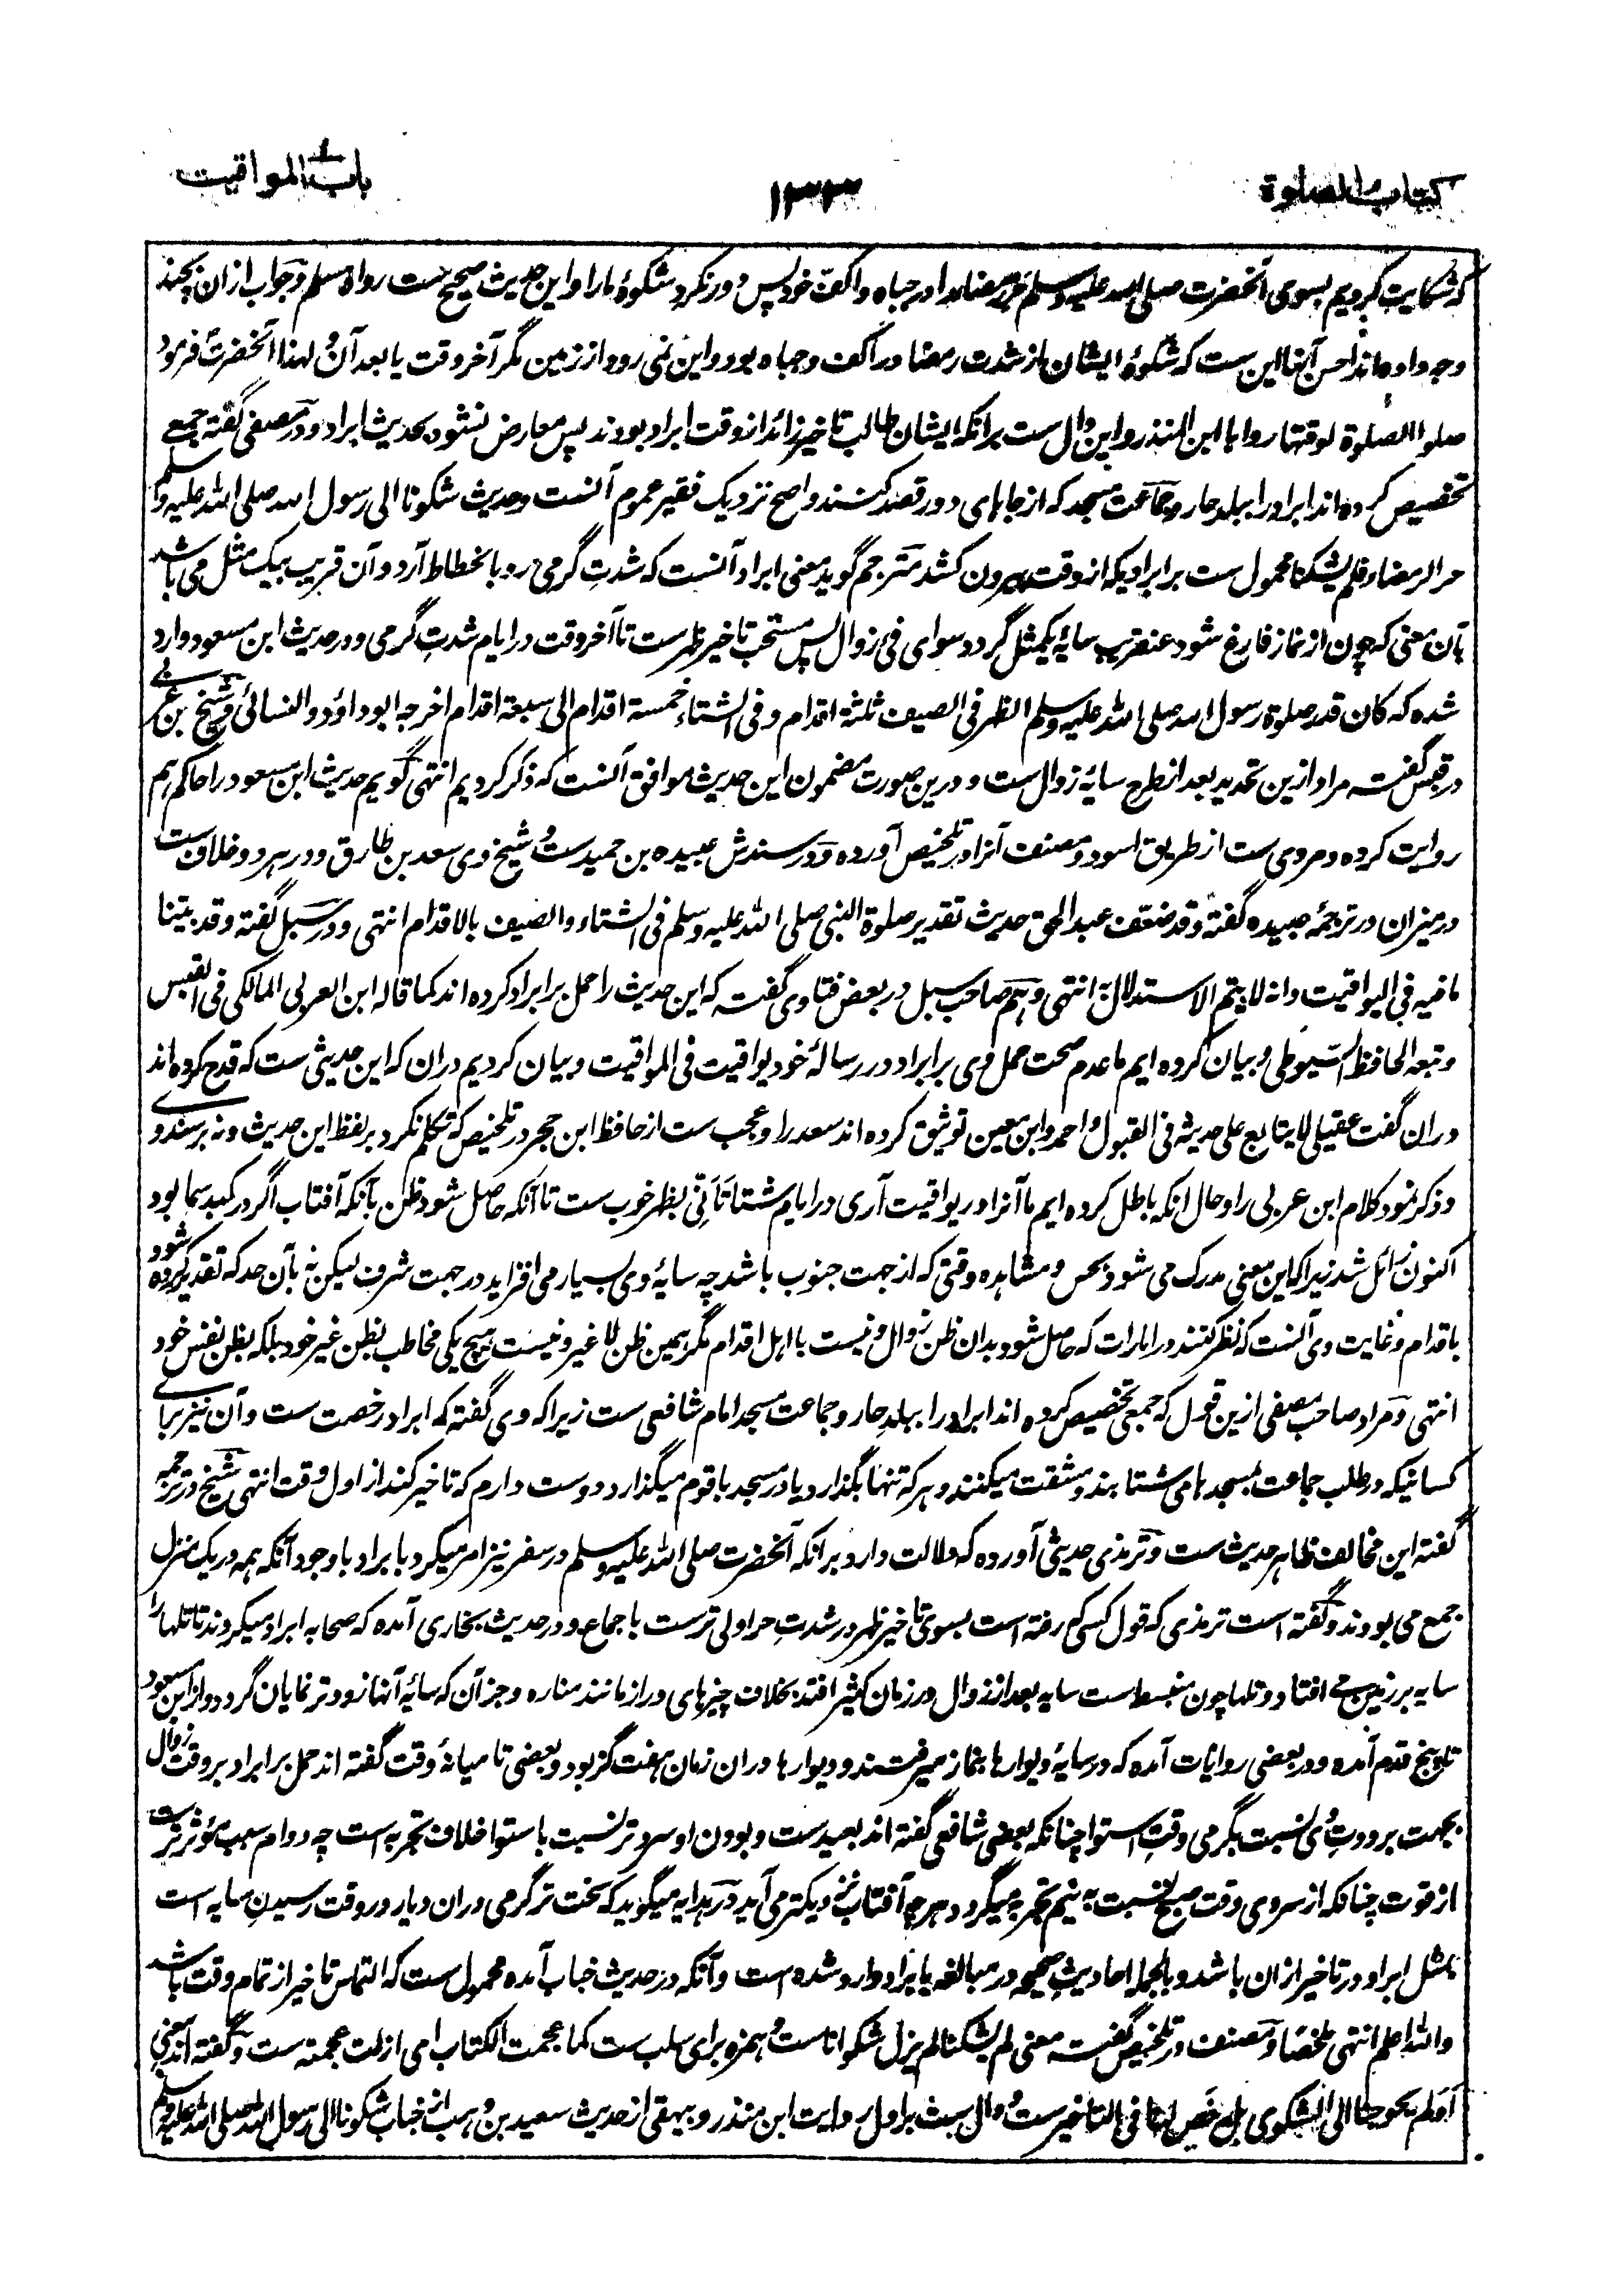 کتاب الصلوة
۱۳۳
باب المواقیت
که شکایت کردیم بسوی آنحضرت صلی الله علیه وسلم حر رمضا را در جباه و اکف خود پس دور نکرد شکوۀ ما را و این حدیث صحیح ست رواه مسلم و جواب ازان بچند
وجه داده اند احسن آنها این ست که شکوۀ ایشان از شدت رمضا در اکف و جباه بود و این نمی رود از زمین مگر آخر وقت یا بعد آن و لهذا آنحضرت فرمود
صلوا الصلوة لوقتها رواها ابن المنذر و این دال ست برانکه ایشان طالب تاخیر زائد از وقت ابراد بودند پس معارض نشود بحدیث ابراد و در مصفی گفته جمعی
تخصیص کرده اند ابراد را ببلد حار و جماعت مسجد که از جاهای دور قصد کنند و اصح نزدیک فقیر عموم آنست و حدیث شکونا الی رسول الله صلی الله علیه وسلم
حر الرمضاء فلم یشکنا محمول ست بر ابرادیکه از وقت بیرون کشد مترجم گوید معنی ابراد آنست که شدت گرمی رو بانحطاط آرد و آن قریب بیک مثل می باشد
بآن معنی که چون از نماز فارغ شود عنقریب سایۀ یکمثل گردد سوای فی زوال پس مستحب تاخیر ظهرست تا آخر وقت در ایام شدت گرمی و در حدیث ابن مسعود وارد
شده که کان قدر صلوة رسول الله صلی الله علیه وسلم الظهر فی الصیف ثلثة اقدام و فی الشتاء خمسة اقدام الی سبعة اقدام اخرجه ابو داؤد و النسائی و شیخ بن عربی
در قبس گفته مراد ازین تحدید بعد از طرح سایۀ زوال ست و درین صورت مضمون این حدیث موافق آنست که ذکر کردیم انتهی گویم حدیث ابن مسعود را حاکم هم
روایت کرده و مروی ست از طریق اسود و مصنف آنرا در تلخیص آورده و در سندش عبیده بن حمید ست و شیخ وی سعد بن طارق و در هر دو خلاف ست
در میزان در ترجمۀ عبیده گفته و قد ضعف عبد الحق حدیث تقدیر صلوة النبی صلی الله علیه وسلم فی الشتاء والصیف بالاقدام انتهی و در سبل گفته و قد بیّنا
ما فیه فی الیواقیت و انه لا یتم الاستدلال به انتهی و هم صاحب سبل در بعض فتاوی گفته که این حدیث را حمل بر ابراد کرده اند کما قاله ابن العربی المالکی فی القبس
و تبعه الحافظ السیوطی و بیان کرده ایم ما عدم صحت حمل وی بر ابراد در رسالۀ خود یواقیت فی المواقیت و بیان کردیم دران که این حدیثی ست که قدح کرده اند
دران گفت عقیلی لا یتابع علی حدیثه فی القبول و احمد و ابن معین توثیق کرده اند سعد را و عجب ست از حافظ ابن حجر در تلخیص که تکلم نکرد بر لفظ این حدیث و نه بر سند وی
و ذکر نمود کلام ابن عربی را و حال انکه باطل کرده ایم ما آنرا در یواقیت آری در ایام شتا تأنّی بظهر خوب ست تا آنکه حاصل شود ظن بآنکه آفتاب اگر در کبد سما بود
اکنون زائل شد زیرا که این معنی مدرک می شود بحس و مشاهده وقتی که از جهت جنوب باشد چه سایۀ وی بسیار می افزاید در جهت شرق لیکن نه بآن حد که تقدیر کرده شود
باقدام و غایت وی آنست که نظر کنند در امارات که حاصل شود بدان ظن زوال و نیست با اهل اقدام مگر همین ظن لا غیر و نیست هیچ یکی مخاطب بظن غیر خود بلکه بظن نفس خود
انتهی و مراد صاحب مصفی ازین قول که جمعی تخصیص کرده اند ابراد را ببلد حار و جماعت مسجد امام شافعی ست زیرا که وی گفته که ابراد رخصت ست و آن نیز برای
کسانیکه در طلب جماعت بمسجدها می شتابند و مشقت میکنند و هر که تنها بگذارد یا در مسجد با قوم میگذارد دوست دارم که تاخیر کند از اول وقت انتهی شیخ در ترجمه
گفته این مخالف ظاهر حدیث ست و ترمذی حدیثی آورده که دلالت دارد برانکه آنحضرت صلی الله علیه وسلم در سفر نیز امر میکرد بابراد با وجود آنکه همه در یک منزل
جمع می بودند و گفته است ترمذی که قول کسی که رفته است بسوی تاخیر ظهر در شدت حر اولی ترست باجماع و در حدیث بخاری آمده که صحابه ابراد میکردند تا تلها را
سایه بر زمین می افتاد و تلها چون منبسط است سایه بعد از زوال در زمان کثیر افتد بخلاف چیزهای دراز مانند مناره و جز آن که سایۀ آنها زودتر نمایان گردد و از ابن مسعود
تا پنج قدم آمده و در بعضی روایات آمده که در سایۀ دیوارها بنماز میرفتند و دیوارها دران زمان هفت گز بود و بعضی تا میانۀ وقت گفته اند حمل بر ابراد بر وقت زوال
بجهت برودت وی نسبت بگرمی وقت استوا چنانکه بعضی شافعی گفته اند بعیدست و بودن او سردتر نسبت باستوا خلاف تجربه است چه دوام سبب مؤثرترست
از قوت چنانکه از سردی وقت صبح نسبت به نیم تجربه میگردد هر چه آفتاب نزدیکتر می آید در هدایه میگوید که سخت تر گرمی دران دیار در وقت رسیدن سایه است
بمثل ابراد در تاخیر ازان باشد و بالجمله احادیث صحیحه در مبالغه بابراد وارد شده است و آنکه در حدیث خباب آمده محمول ست که التماس تاخیر از تمام وقت باشد
والله اعلم انتهی ملخصا و مصنف در تلخیص گفته معنی لم یشکنا لم یزل شکوانا ست و همزه برای سلب ست کما عجمت الکتاب ای ازلت عجمته ست و گفته اند یعنی
آلم یحوجنا الی الشکوی بل رخص لنا فی التاخیر ست و دال ست بر اول روایت ابن منذر و بیهقی از حدیث سعید بن وهب از خباب شکونا الی رسول الله صلی الله علیه وسلم